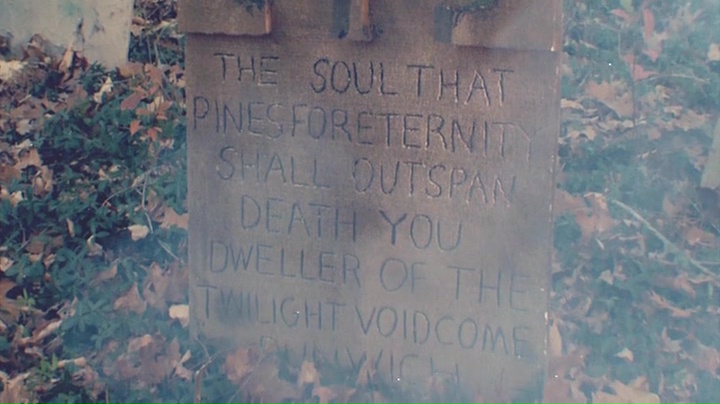 THE SOUL THAT
PINES FOR ETERNITY
SHALL OUTSPAN
DEATH YOU
DWELLER OF THE
TWILIGHT VOID COME
DUNWICH